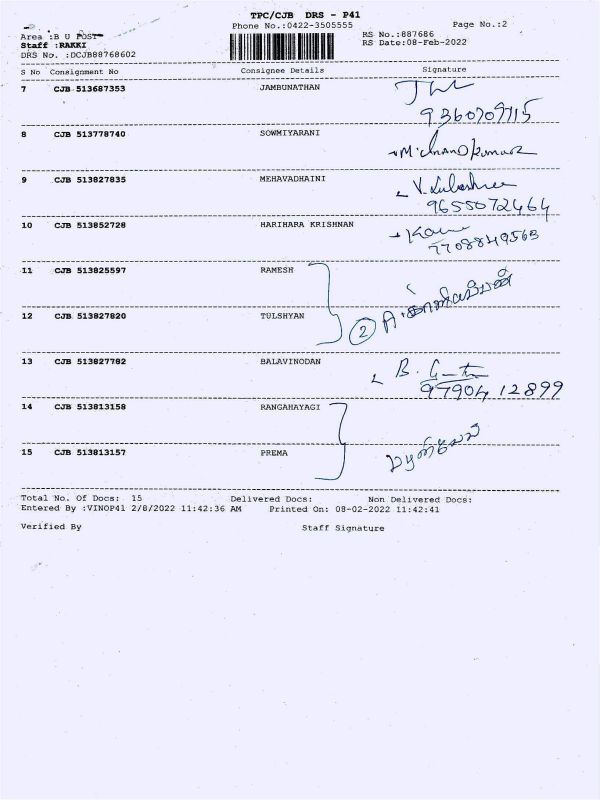 TPC/CJB DRS - P41
Phone No.:0422-3505555
Page No.:2
Area :B U POST
Staff :RAKKI
DRS No. :DCJB88768602
RS No.:887686
RS Date:08-Feb-2022
S No Consignment No Consignee Details Signature
7 CJB 513687353 JAMBUNATHAN
9360709715
8 CJB 513778740 SOWMIYARANI
M. Anand Kumar
9 CJB 513827835 MEHAVADHAINI
9655072464
10 CJB 513852728 HARIHARA KRISHNAN
7708849563
11 CJB 513825597 RAMESH
12 CJB 513827820 TULSHYAN
2
13 CJB 513827782 BALAVINODAN
97904 12899
14 CJB 513813158 RANGAHAYAGI
15 CJB 513813157 PREMA
Total No. Of Docs: 15 Delivered Docs: Non Delivered Docs:
Entered By :VINOP41 2/8/2022 11:42:36 AM Printed On: 08-02-2022 11:42:41
Verified By Staff Signature